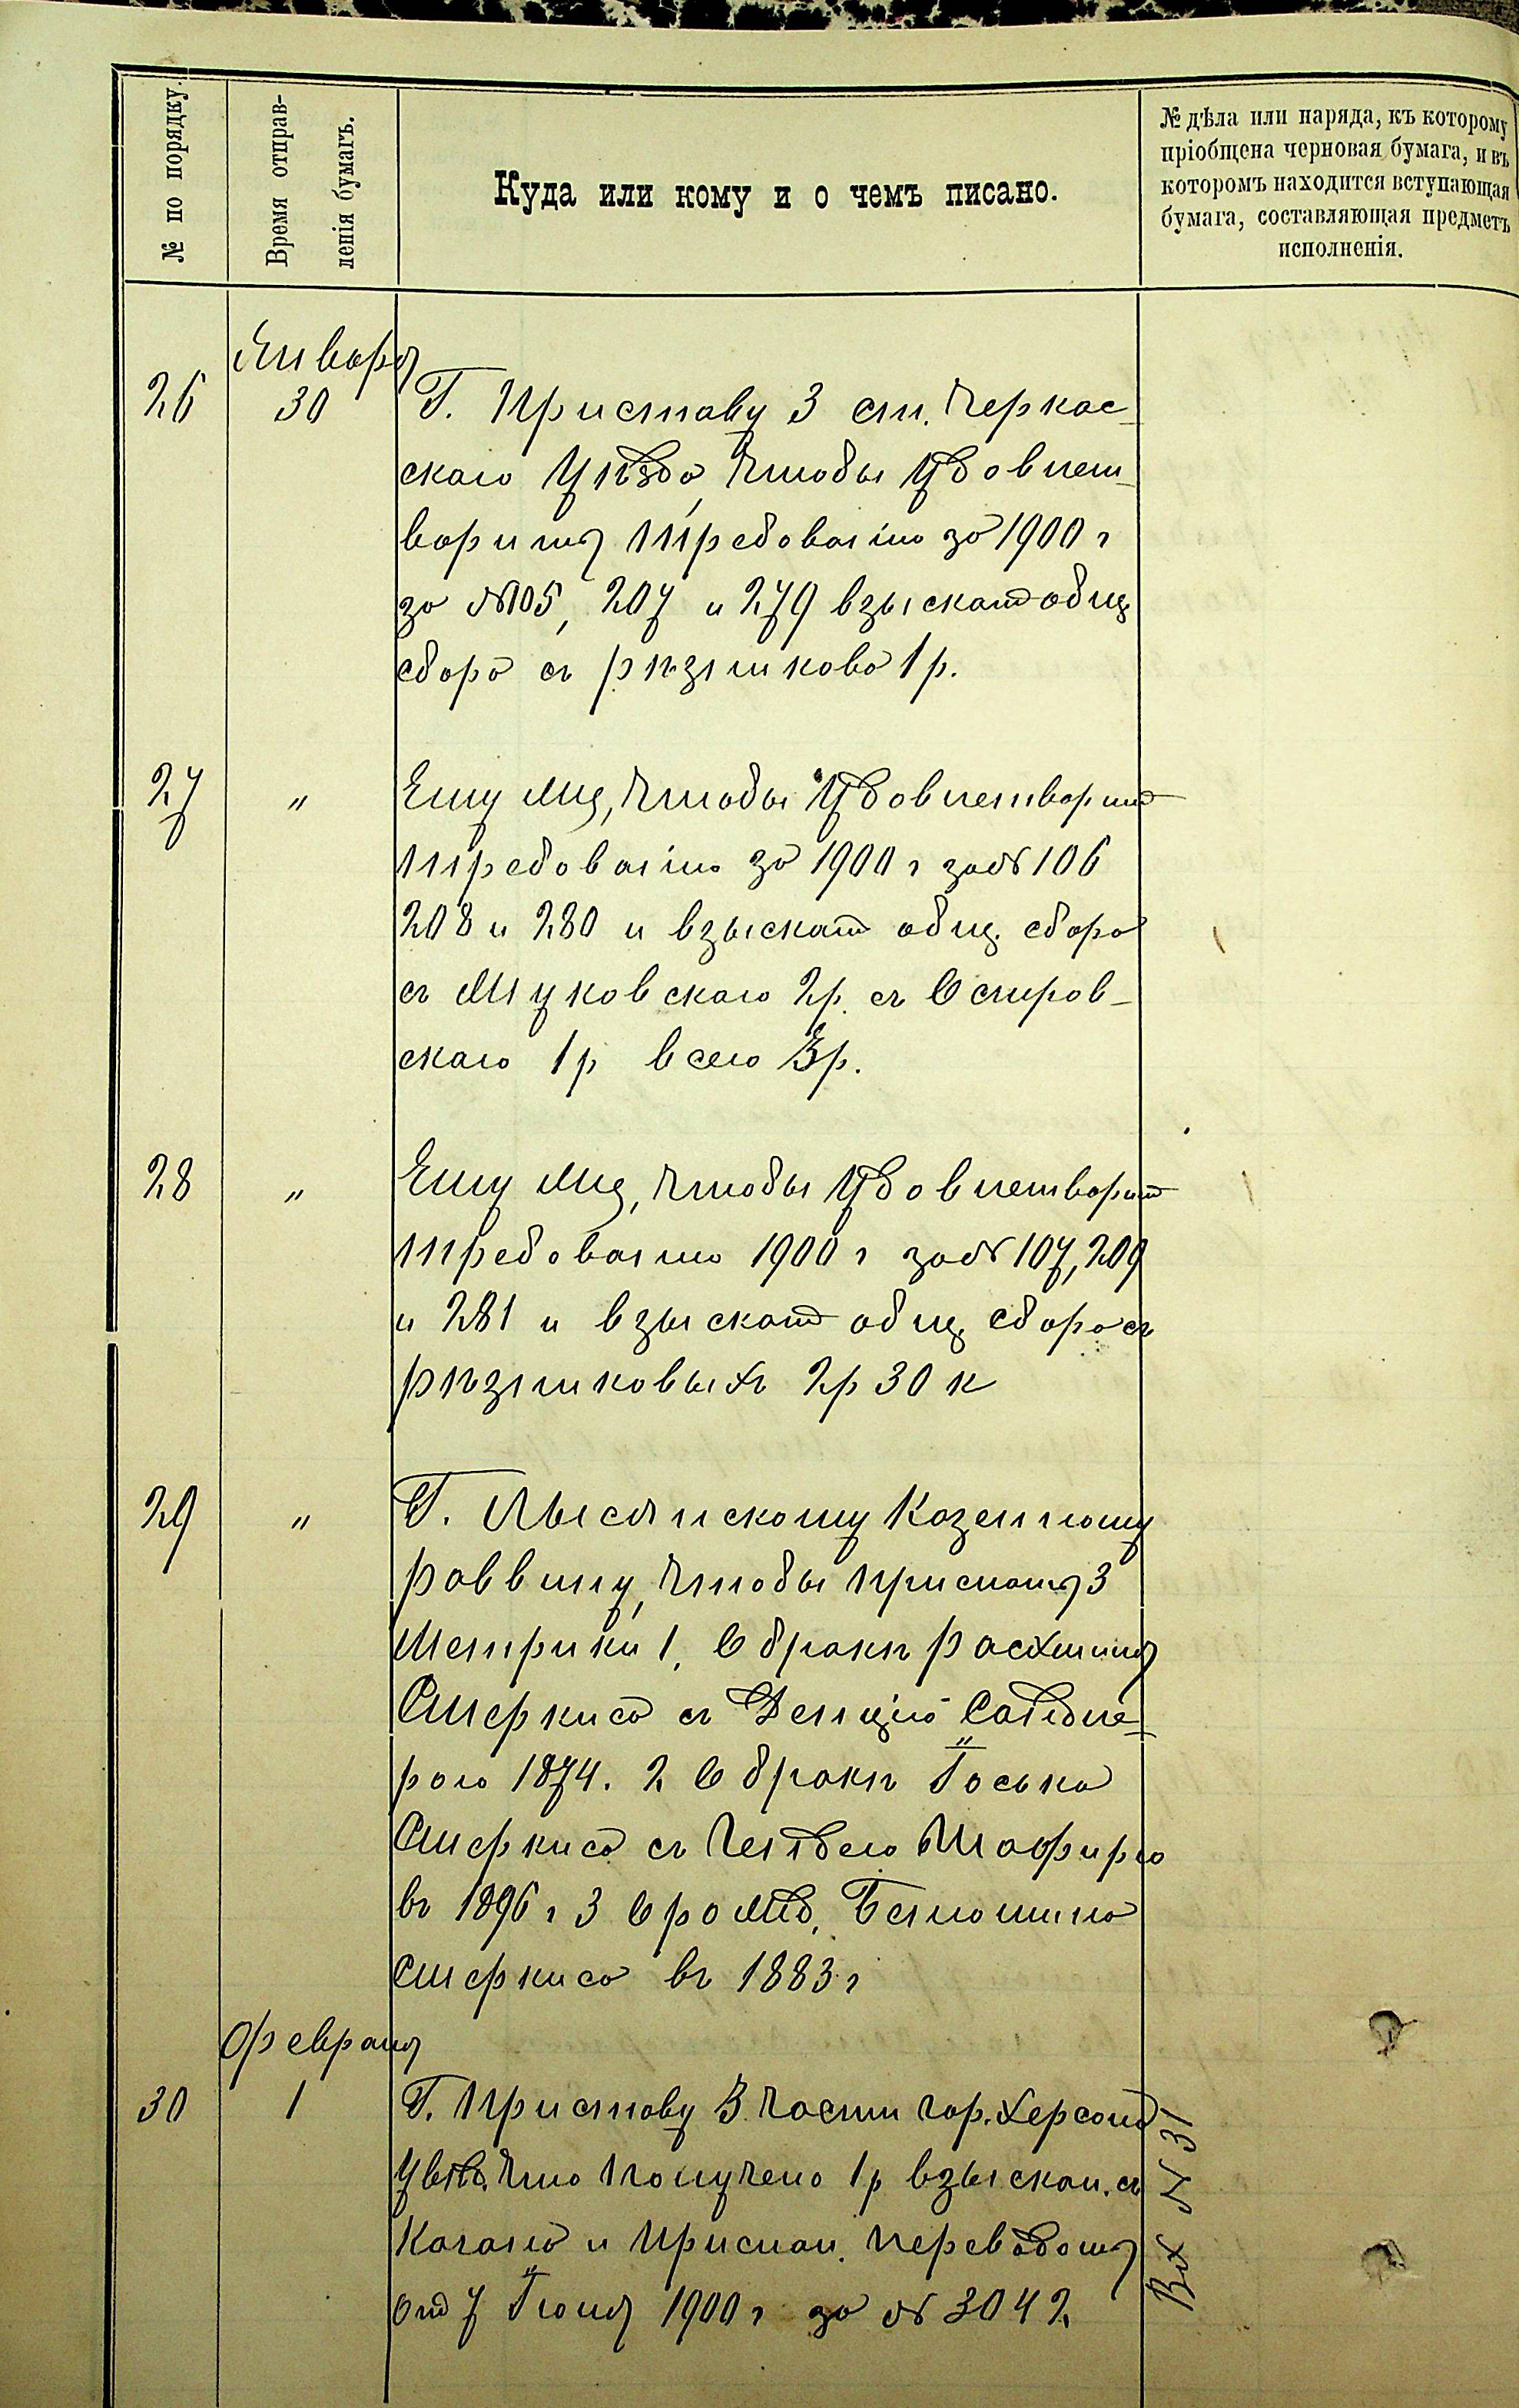 № по порядку.
Время отправ-
ленія бумагъ.
Куда или кому и о чемъ писано.
№ дѣла или наряда, къ которому
пріобщена черновая бумага, и въ
которомъ находится вступающая
бумага, составляющая предметъ
исполненія.
Января
26 30 Г. Приставу 3 ст. Черкас-
скаго Уѣзда, чтобы Удовлет-
ворить требованію за 1900 г
за №105, 207 и 279 взыскат общ
сбора съ Рѣзникова 1 р.
27 " Ему же, чтобы Удовлетворит
требованію за 1900 г за № 106
208 и 280 и взыскат общ. сбора
съ Жуковскаго 2р. съ Остров-
скаго 1 р всего 3р.
28 " Ему же, чтобы Удовлетворит
требованію 1900 г за № 107, 209
и 281 и взыскат общ. сбора съ
Рѣзниковыхъ 2р 30 к
29 " Г. Лысянскому Казенному
раввину, чтобы прислать 3
Метрики 1, О бракѣ
съ
1874. 2 О бракѣ Іоська
съ
въ 1896 г 3 О рожд.
въ 1883 г
Февраля
30 1 Г. Приставу 3 части гор. Херсона
Увѣд. что получено 1 р взыскан. съ
Кагана и прислан. переводомъ
от 7 Іюня 1900 г за № 3042
Вх № 31